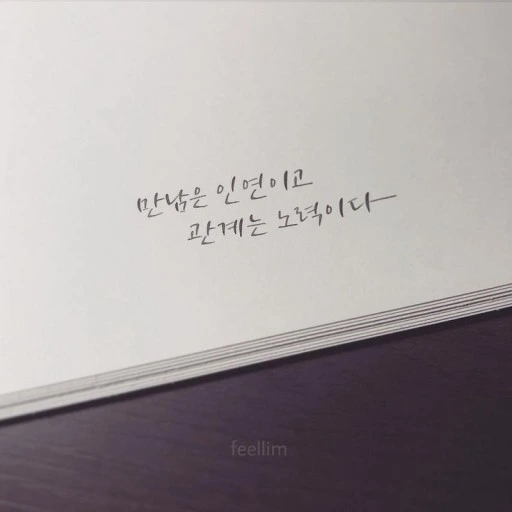 만남은 인연이고
관계는 노력이다
feellim